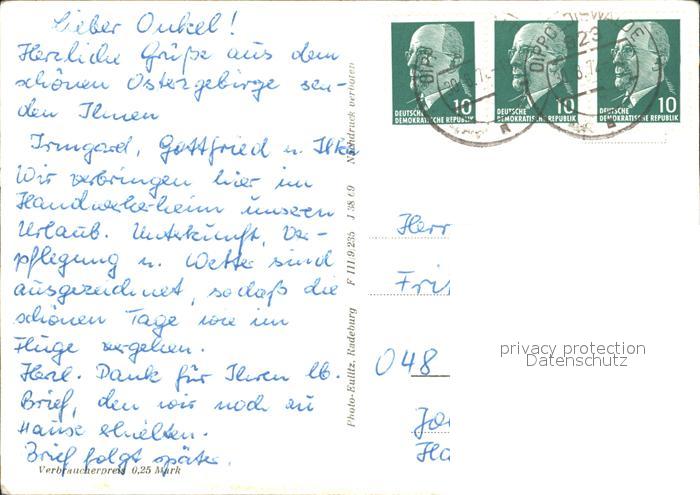 Lieber Onkel!
Herzliche Grüße aus dem
schönen Osterzgebirge sen-
den Ihnen
Irmgard, Gottfried u. Ilka
Wir verbringen hier im
Handwerkerheim unseren
Urlaub. Unterkunft, Ver-
pflegung u. Wetter sind
ausgezeichnet, sodaß die
schönen Tage wie im
Fluge vergehen.
Herzl. Dank für Ihren lb.
Brief, den wir noch zu
Hause erhielten.
Brief folgt später.
Verbraucherpreis 0,25 Mark
Photo-Eulitz, Radeburg F III.9.235 J 38/69 Nachdruck verboten
10
DEUTSCHE
DEMOKRATISCHE REPUBLIK
10
DEUTSCHE
DEMOKRATISCHE REPUBLIK
10
DEUTSCHE
DEMOKRATISCHE REPUBLIK
Herr
048
privacy protection
Datenschutz